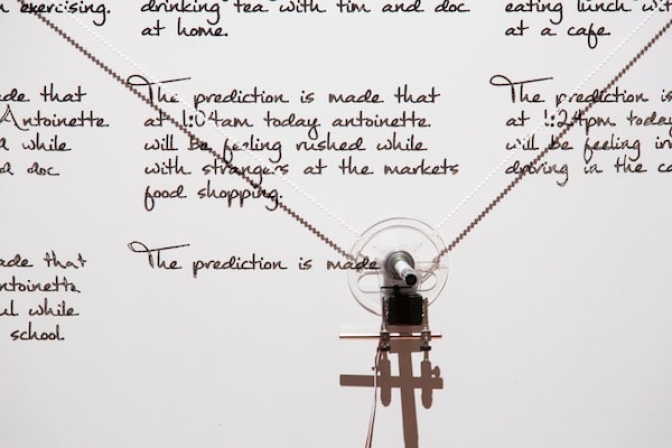 exercising.
drinking tea with tim and doc
at home.
eating lunch
at a cafe.
made that
Antoinette
while
doc
The prediction is made that
at 1:04am today antoinette
will be feeling rushed while
with strangers at the markets
food shopping.
The prediction is
at today
will be feeling
driving in the
made that
antoinette
while
school.
The prediction is made